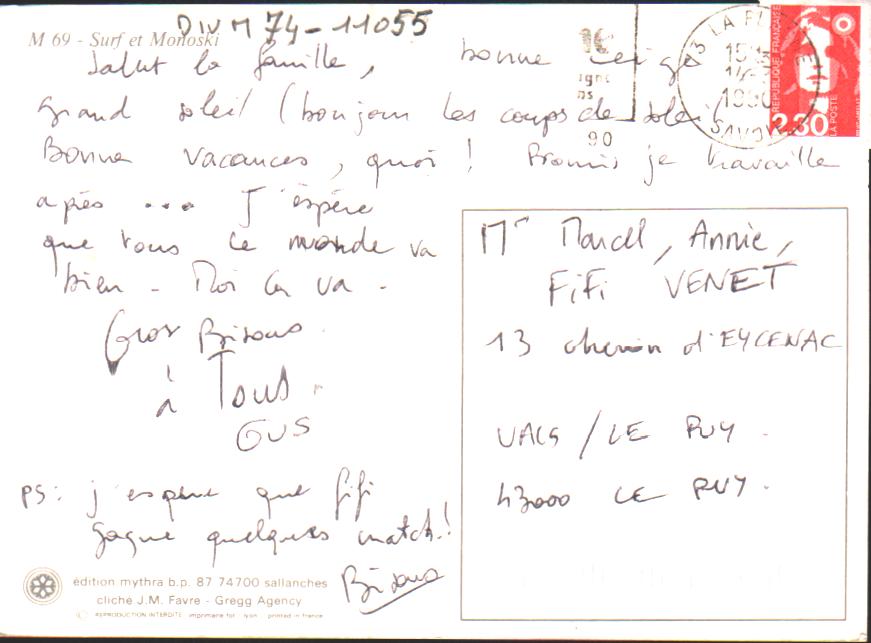 DIV M 74-11055
M 69 - Surf et Monoski
Salut la famille, bonne neige
grand soleil (bonjour les coups de soleil
Bonne vacances, quoi ! Promis je travaille
après ... J'espère
que tous le monde va
bien - Moi ça va -
Gros Bisous
à Tous.
GUS
PS: j'espère que fifi
gagne quelques match.!
Bisous
édition mythra b.p. 87 74700 sallanches
cliché J.M. Favre - Gregg Agency
REPRODUCTION INTERDITE imprimerie printed in france
90
73 LA
15H
1990
SAVOIE
REPUBLIQUE FRANÇAISE
2,30
LA POSTE
Mr Marcel, Annie,
FiFi VENET
13 chemin d'EYCENAC
VALS / LE PUY.
43000 LE PUY.